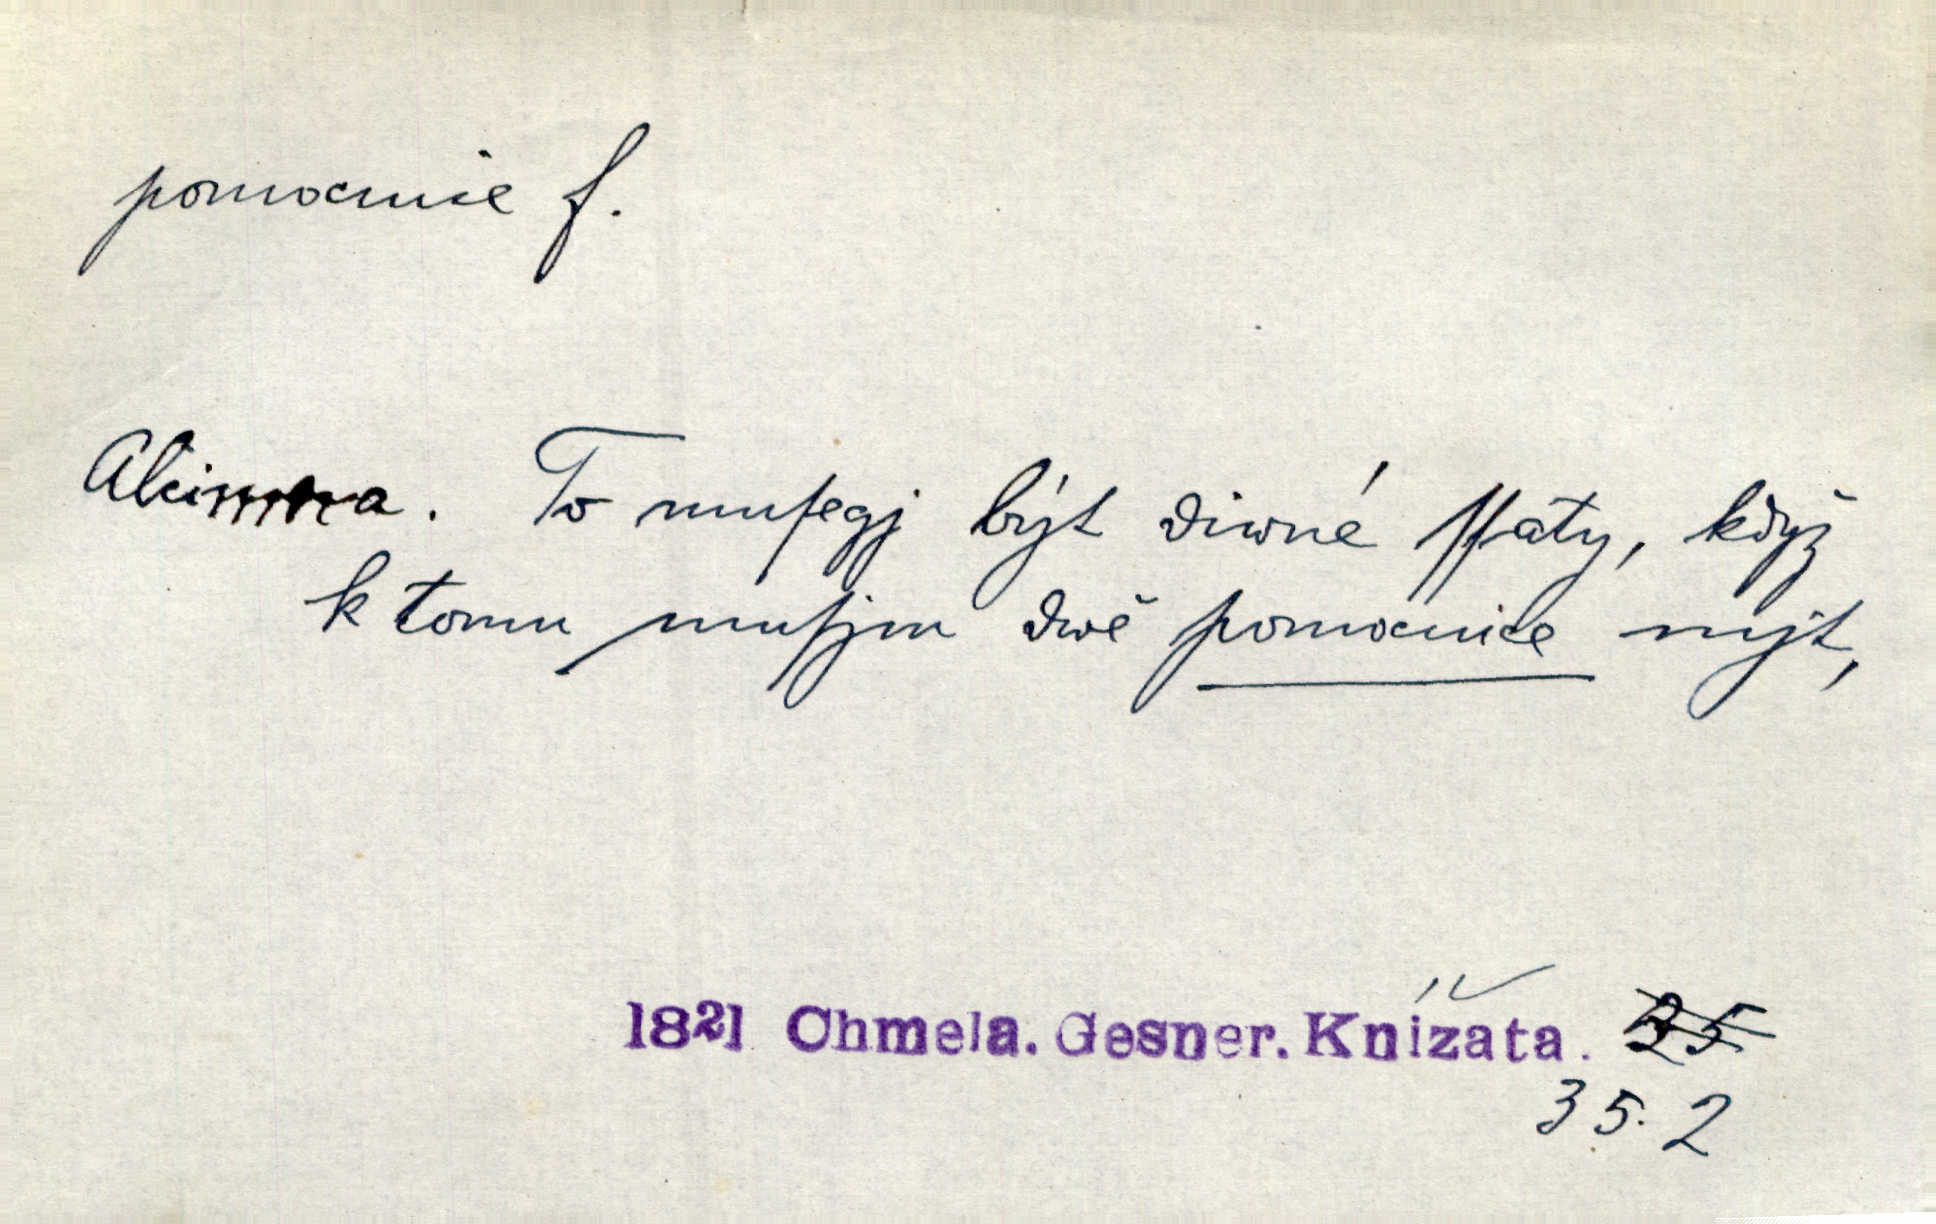 pomocnice f.
Alcimna. To muſegj být diwné ſſaty, když
k tomu muſjm dwě pomocnice mjt,
1821 Chmela. Gesner. Knížata.
35. 2